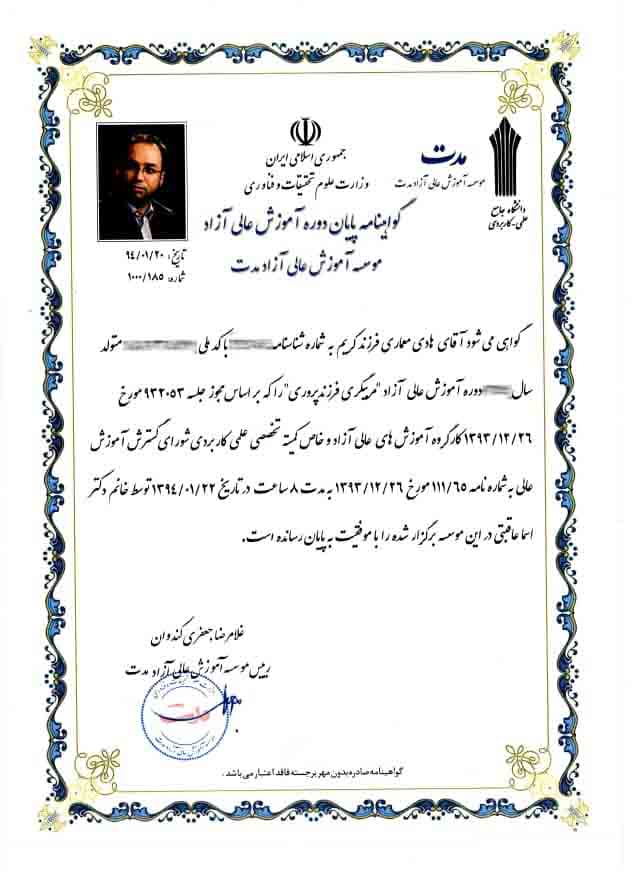 جمهوری اسلامی ایران
وزارت علوم تحقیقات و فناوری
مدت
موسسه آموزش عالی آزاد مدت
دانشگاه جامع
علمی-کاربردی
گواهینامه پایان دوره آموزش عالی آزاد
موسسه آموزش عالی آزاد مدت
تاریخ: ۹۴/۰۱/۲۰
شماره: ۱۰۰۰/۱۸۵
گواهی می شود آقای هادی معماری فرزند کریم به شماره شناسنامه با کد ملی متولد
سال دوره آموزش عالی آزاد "مربیگری فرزندپروری" را که بر اساس مجوز جلسه ۹۳۲۰۵۳ مورخ
۱۳۹۳/۱۲/۲۶ کارگروه آموزش های عالی آزاد و خاص کمیته تخصصی علمی کاربردی شورای گسترش آموزش
عالی به شماره نامه ۱۱۱/۶۵ مورخ ۱۳۹۳/۱۲/۲۶ به مدت ۸ ساعت در تاریخ ۱۳۹۴/۰۱/۲۲ توسط خانم دکتر
اسما عاقبتی در این موسسه برگزار شده را با موفقیت به پایان رسانده است.
غلامرضا جعفری کندوان
رییس موسسه آموزش عالی آزاد مدت
مدت
موسسه آموزش عالی آزاد مدت
گواهینامه صادره بدون مهر برجسته فاقد اعتبار می باشد.